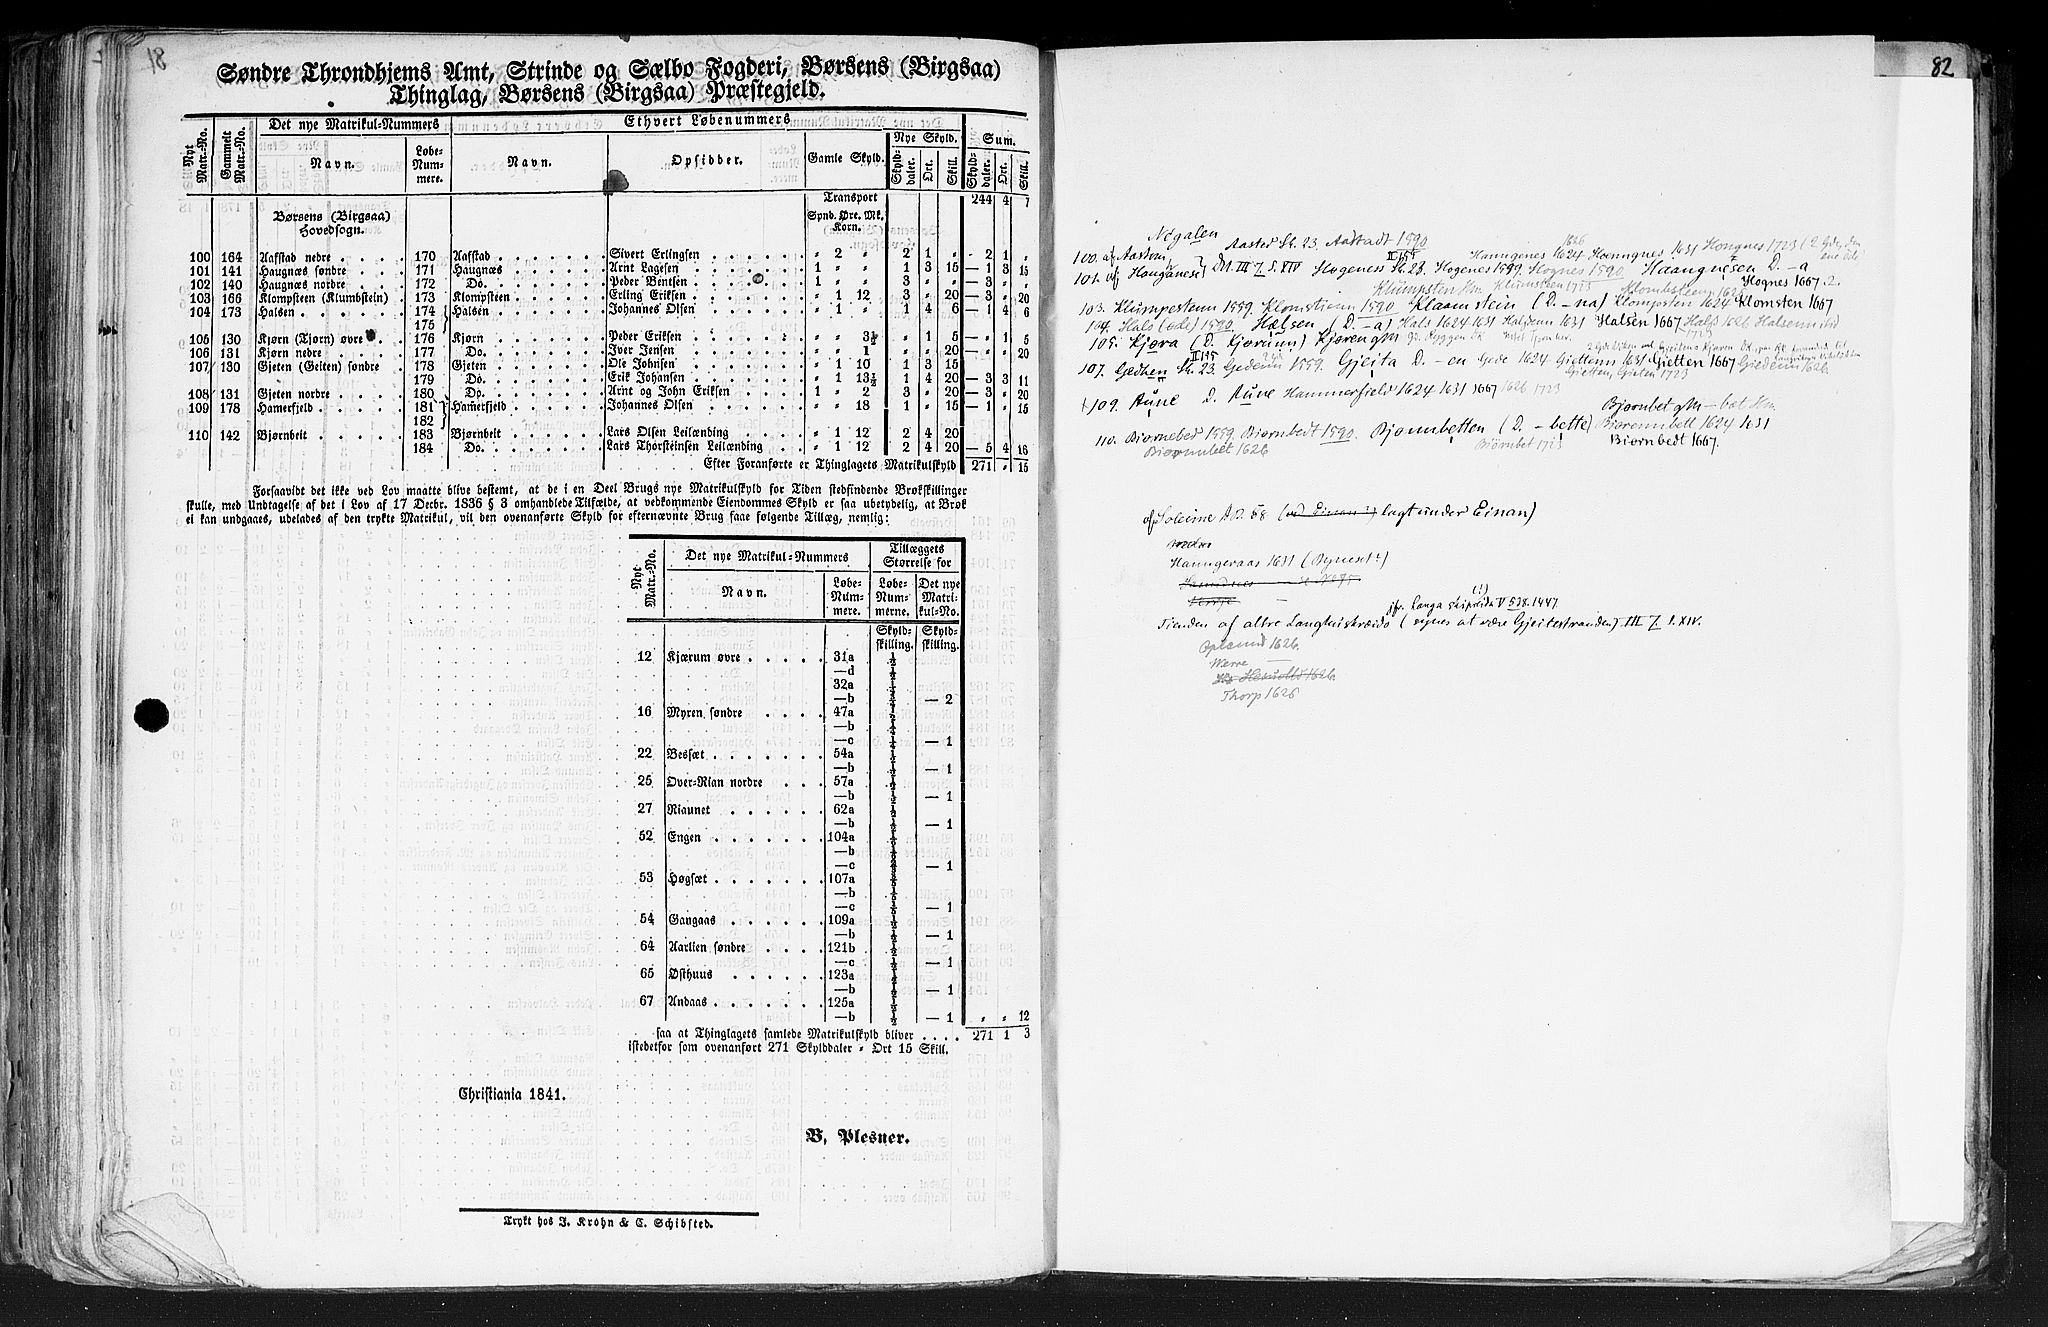 81
Søndre Throndhjems Amt, Strinde og Sælbo Fogderi, Børsens (Birgsaa)
Thinglag, Børsens (Birgsaa) Præstegjeld.
Nyt Matr.-No. Gammelt Matr.-No. Det nye Matrikul-Nummers Ethvert Løbenummers
Navn. Løbe-Num-mere. Navn. Opsidder. Gamle Skyld. Nye Skyld. Sum.
Skyld-daler. Ort. Skill. Skyld-daler. Ort. Skill.
Transport 244 4 7
Børsens (Birgsaa) Hovedsogn. Spnd. Øre. Mk. Korn.
100 164 Aafstad nedre 170 Aafstad Sivert Erlingsen " 2 " 2 1 " - 2 1 "
101 141 Haugnæs søndre 171 Haugnæs Arnt Lagesen 1 " " 1 3 15 — 1 3 15
102 140 Haugnæs nordre 172 Do. Peder Bentsen 1 " " 3 " " — 3 " "
103 166 Klompsteen (Klumbstein) 173 Klompsteen Erling Eriksen " 1 12 3 " 20 — 3 " 20
104 173 Halsen 174 Halsen Johannes Olsen " 1 " 1 4 6 — 1 4 6
175
105 130 Kjørn (Tjørn) øvre 176 Kjørn Peder Eriksen " " 3½ " 1 5 — " 1 5
106 131 Kjørn nedre 177 Do. Iver Jensen " " 1 " " 20 — " " 20
107 130 Gjeten (Geiten) søndre 178 Gjeten Ole Johnsen " 1 10 1 3 15
179 Do. Erik Johansen " 1 13½ 1 4 20 — 3 3 11
108 131 Gjeten nordre 180 Do. Arnt og John Eriksen 1 " 2 3 " 20 — 3 " 20
109 178 Hamerfjeld 181 Hamerfjeld Johannes Olsen " " 18 1 " 15 — 1 " 15
182
110 142 Bjørnbeit 183 Bjørnbeit Lars Olsen Leilænding " 1 12 2 4 20
184 Do. Lars Thorsteinsen Leilænding " 1 12 2 4 20 — 5 4 16
Efter Foranførte er Thinglagets Matrikulskyld 271 " 15
Forsaavidt det ikke ved Lov maatte blive bestemt, at de i en Deel Brugs nye Matrikulskyld for Tiden stedfindende Brøkskillinger
skulle, med Undtagelse af det i Lov af 17 Decbr. 1836 § 3 omhandlede Tilfælde, at vedkommende Eiendommes Skyld er saa ubetydelig, at Brøk
ei kan undgaaes, udelades af den trykte Matrikul, vil den ovenanførte Skyld for efternævnte Brug faae følgende Tillæg, nemlig:
Nyt Matr.-No. Det nye Matrikul-Nummers Tillæggets Størrelse for
Navn. Løbe-Num-mere. Løbe-Num-merne. Det nye Matri-kul-No.
Skyld-skilling. Skyld-skilling.
12 Kjærum øvre 31a ½
—d ½
32a ½
—b ½ — 2
16 Myren søndre 47a
—b
—c — 1
22 Bessæt 54a ½
—b ½ — 1
25 Over-Rian nordre 57a ½
—b ½ — 1
27 Riaunet 62a ½
—b ½ — 1
52 Engen 104a
—b
—c — 1
53 Høgsæt 107a
—b
—c — 1
54 Gangaas 109a ½
—b ½ — 1
64 Aarlien søndre 121b ½
—c ½ — 1
65 Østhuus 123a ½
—b ½ — 1
67 Andaas 125a ½
—b ½ — 1 " " 12
saa at Thinglagets samlede Matrikulskyld bliver 271 1 3
istedetfor som ovenanført 271 Skylddaler " Ort 15 Skill.
Christiania 1841.
B. Plesner.
Trykt hos J. Krohn & C. Schibsted.
82
100. Aasten Aasted St. 23. Aastadt 1590
101. af Houganese DN. III 7 S. XIV Hogeness St. 23. Hogenes 1559. Hognes 1590 Haangnesen D. -a
Hanngenes 1624 Hanngnes 1631 Hongnes 1723
Hognes 1667. 2.
103. Klumpestenn 1559. Klomstienn 1590 Klaamstein (D. -na) Klompsten 1624 Klomsten 1667
104. Hals (øde) 1590. Hælsen (D. -a) Hals 1624 1631 Halsenn 1631 Halsen 1667 Hals 1626
105. Kjøra (D. Kjøránn) Kjøren
107. Gedhen St. 23. Gedenn 1559. Gjeita D. -en Gede 1624 Giettenn 1631 Gietten 1667 Giedenn 1626.
Gietten, Gieten 1723
109. Aune D. Aune Hammerfield 1624 1631 1667 1626 1723
110. Biørnebed 1559. Biørnbedt 1590. Bjønnbetten (D. -bette) Biørennbett 1624 1631
Biørnbet 1626 Biørnbet 1723 Biørnbedt 1667.
af Soleime AB. 58 (ved Einan?) lagt under Einan)
Hanngeraas 1631 (Bynæset?)
jfr. Langa skipreida V 538. 1447.
Tienden af altre Langheiskræido (synes at være Gjeitestranden) III 7 S. XIV.
Opland 1626.
Werre —
Thorp 1626